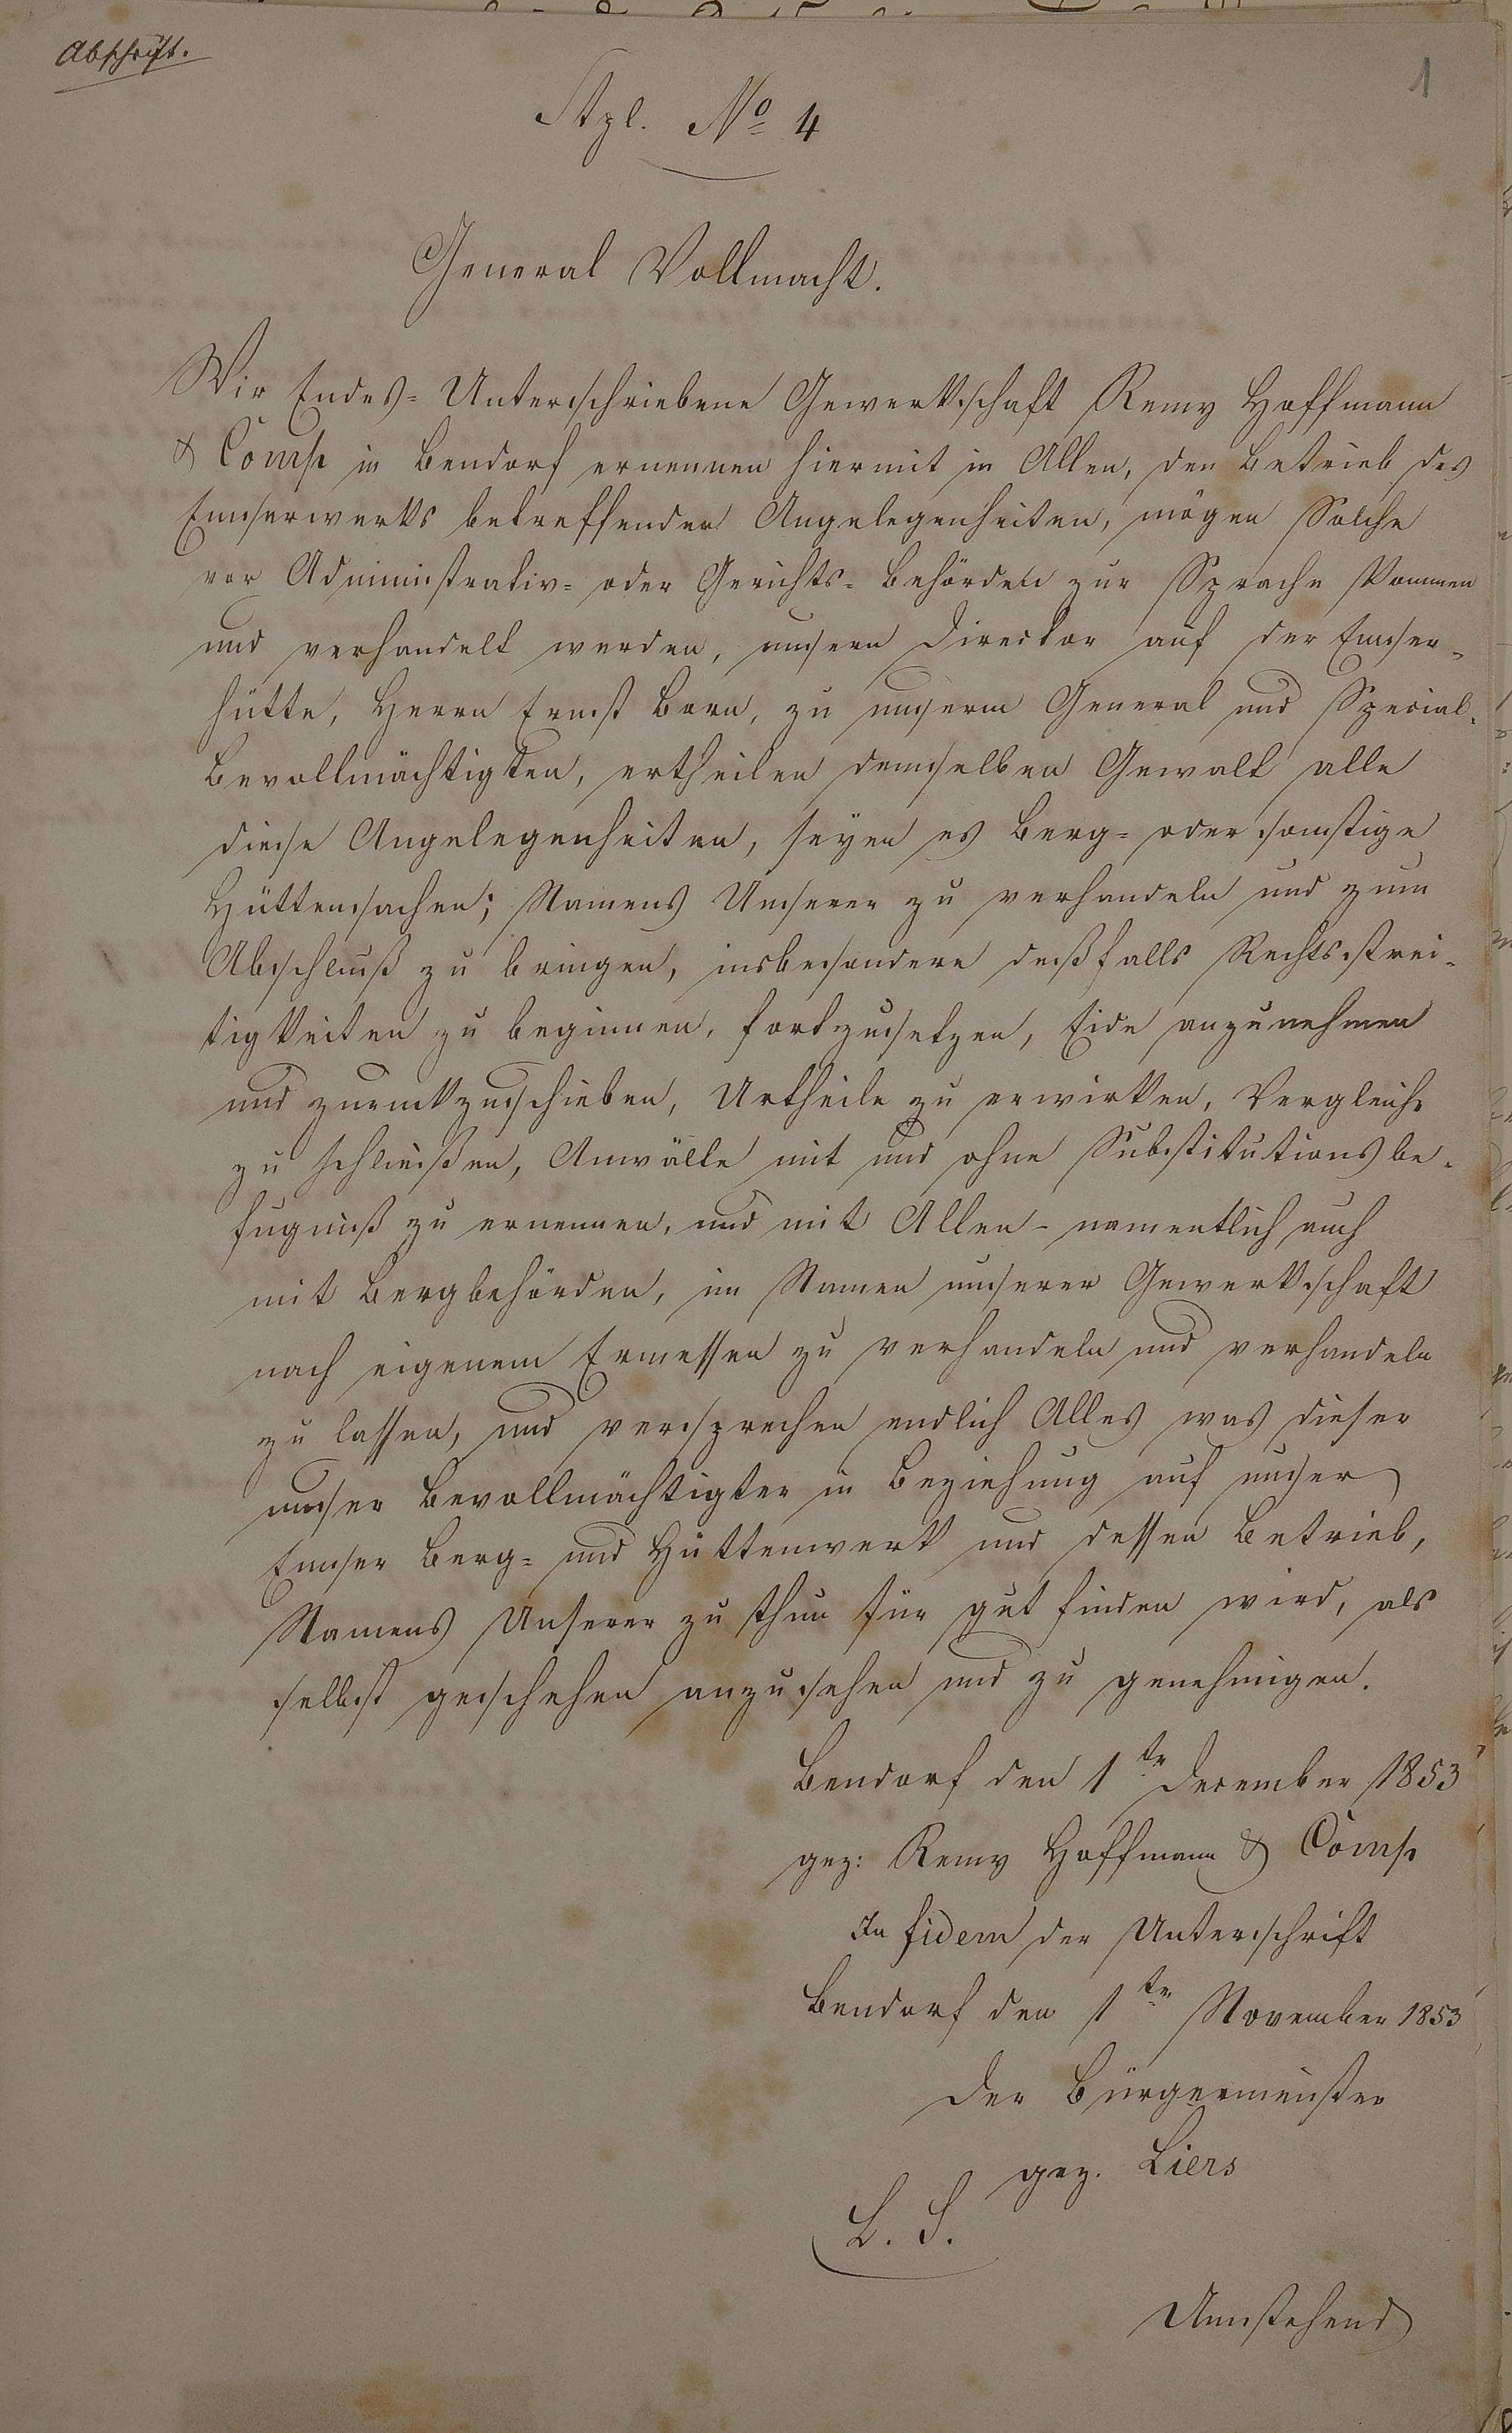 Abschrift.
1
Stzl. No 4
General Vollmacht.
Wir Endes-Unterschriebene Gewerkschaft Remy Hoffmann
& Comp in Bendorf ernennen hiermit in Allen, den Betrieb des
Emserwerks betreffenden Angelegenheiten, mögen Solche
vor Administrativ- oder Gerichts-Behörden zur Sprache kommen
und verhandelt werden, unsern Director auf der Emser-
hütte, Herrn Ernst Born, zu unserm General und Special-
Bevollmächtigten, ertheilen demselben Gewalt alle
diese Angelegenheiten, seyen es Berg- oder sonstige
Hüttensachen; Namens Unserer zu verhandeln und zum
Abschluß zu bringen, insbesondere deßfalls Rechtsstrei-
tigkeiten zu beginnen, fortzusetzen, Eide anzunehmen
und zurückzuschieben, Urtheile zu erwirken, Vergleiche
zu schließen, Anwälte mit und ohne Substitutionsbe-
fugniß zu ernennen, und mit Allen - namentlich auch
mit Bergbehörden, im Namen unserer Gewerkschaft
nach eigenem Ermessen zu verhandeln und verhandeln
zu lassen, und versprechen endlich Alles was dieser
unser Bevollmächtigter in Beziehung auf unser
Emser Berg- und Hüttenwerk und dessen Betrieb,
Namens Unserer zu thun für gut finden wird, als
selbst geschehen anzusehen und zu genehmigen.
Bendorf den 1ten December 1853
gez: Remy Hoffmann & Comp
In fidem der Unterschrift
Bendorf den 1ten November 1853
Der Bürgermeister
gez. Liers
L. S.
Umstehend